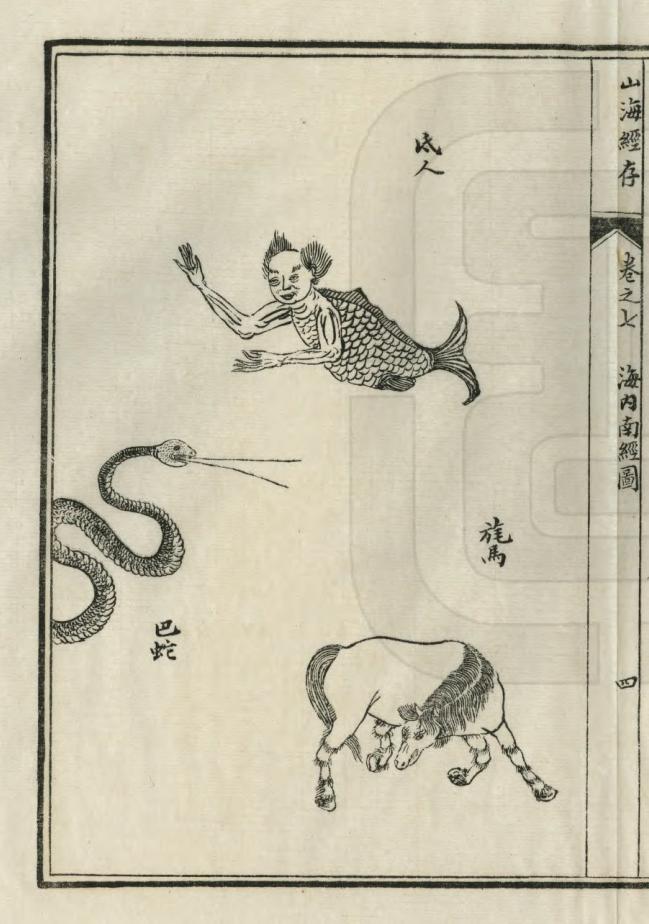 山海經存
卷之七　海内南經圖
四
氐人
旄馬
巴蛇